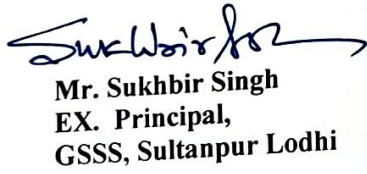 Sukhbir
Mr. Sukhbir Singh
EX. Principal,
GSSS, Sultanpur Lodhi